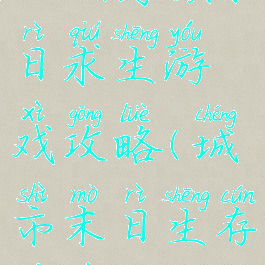 rì qiú shēng yóu
日求生游
xì gōng lüè chéng
戏攻略(城
shì mò rì shēng cún
市末日生存